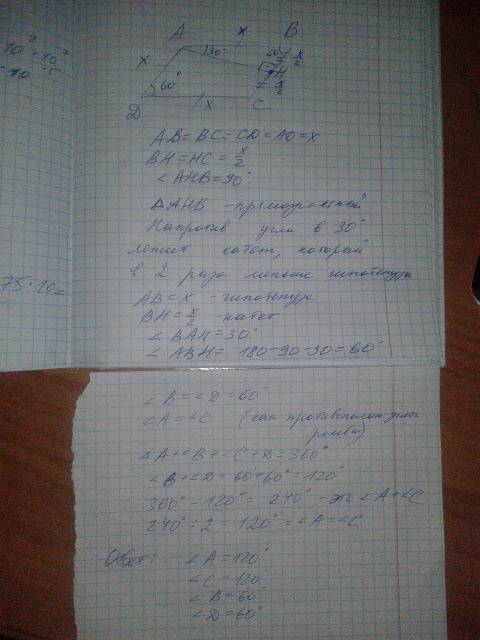 10² · 10⁻⁷
10⁻⁵
75 · 10
A x B
x 30° 60° x/2
H
60° x/2
D x C
AB = BC = CD = AD = x
BH = HC = x/2
∠AHB = 90°
ΔAHB - прямоугольный
Напротив угла в 30°
лежит катет, который
в 2 раза меньше гипотенузы
AB = x - гипотенуза
BH = x/2 катет
∠BAH = 30°
∠ABH = 180-90-30 = 60°
∠B = ∠D = 60°
∠A = ∠C (как противополож углы
ромба)
∠A+∠B+∠C+D = 360°
∠B+∠D = 60°+60° = 120°
360° - 120° = 240° - это ∠A+∠C
240° : 2 = 120° = ∠A = ∠C
Ответ: ∠A = 120°
∠C = 120°
∠B = 60°
∠D = 60°